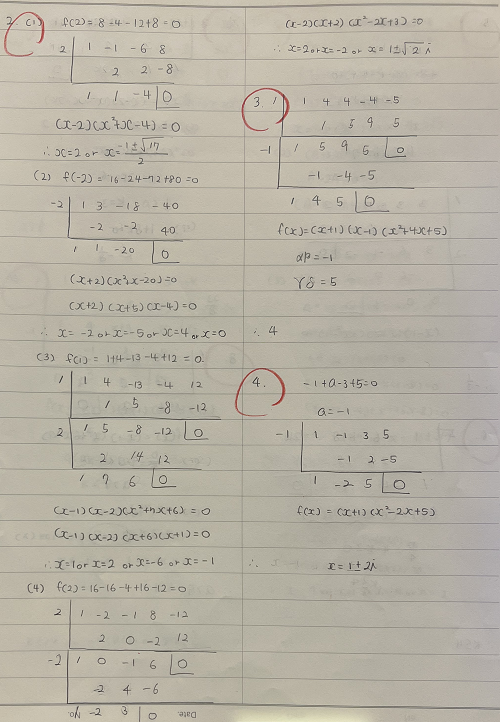 2 (1) f(2) = 8-4-12+8 = 0
2 | 1 -1 -6 8
2 2 -8
1 1 -4 | 0
(x-2)(x²+x-4) = 0
∴ x=2 or x = (-1±√17)/2
(2) f(-2) = 16-24-72+80 = 0
-2 | 1 3 -18 -40
-2 -2 40
1 1 -20 | 0
(x+2)(x²+x-20)=0
(x+2)(x+5)(x-4)=0
∴ x = -2 or x=-5 or x=4 or x=0
(3) f(1) = 1+4-13-4+12 = 0.
1 | 1 4 -13 -4 12
1 5 -8 -12
2 | 1 5 -8 -12 | 0
2 14 12
1 7 6 | 0
(x-1)(x-2)(x²+7x+6) = 0
(x-1)(x-2)(x+6)(x+1)=0
∴ x=1 or x=2 or x=-6 or x=-1
(4) f(2) = 16-16-4+16-12 = 0
2 | 1 -2 -1 8 -12
2 0 -2 12
-2 | 1 0 -1 6 | 0
-2 4 -6
1 -2 3 | 0
Date No.
(x-2)(x+2)(x²-2x+3)=0
∴ x=2 or x=-2 or x = 1±√2 i
3 1 | 1 4 4 -4 -5
1 5 9 5
-1 | 1 5 9 5 | 0
-1 -4 -5
1 4 5 | 0
f(x) = (x+1)(x-1)(x²+4x+5)
αβ = -1
γδ = 5
∴ 4
4. -1+a-3+5=0
a = -1
-1 | 1 -1 3 5
-1 2 -5
1 -2 5 | 0
f(x) = (x+1)(x²-2x+5)
∴ x = 1±2i